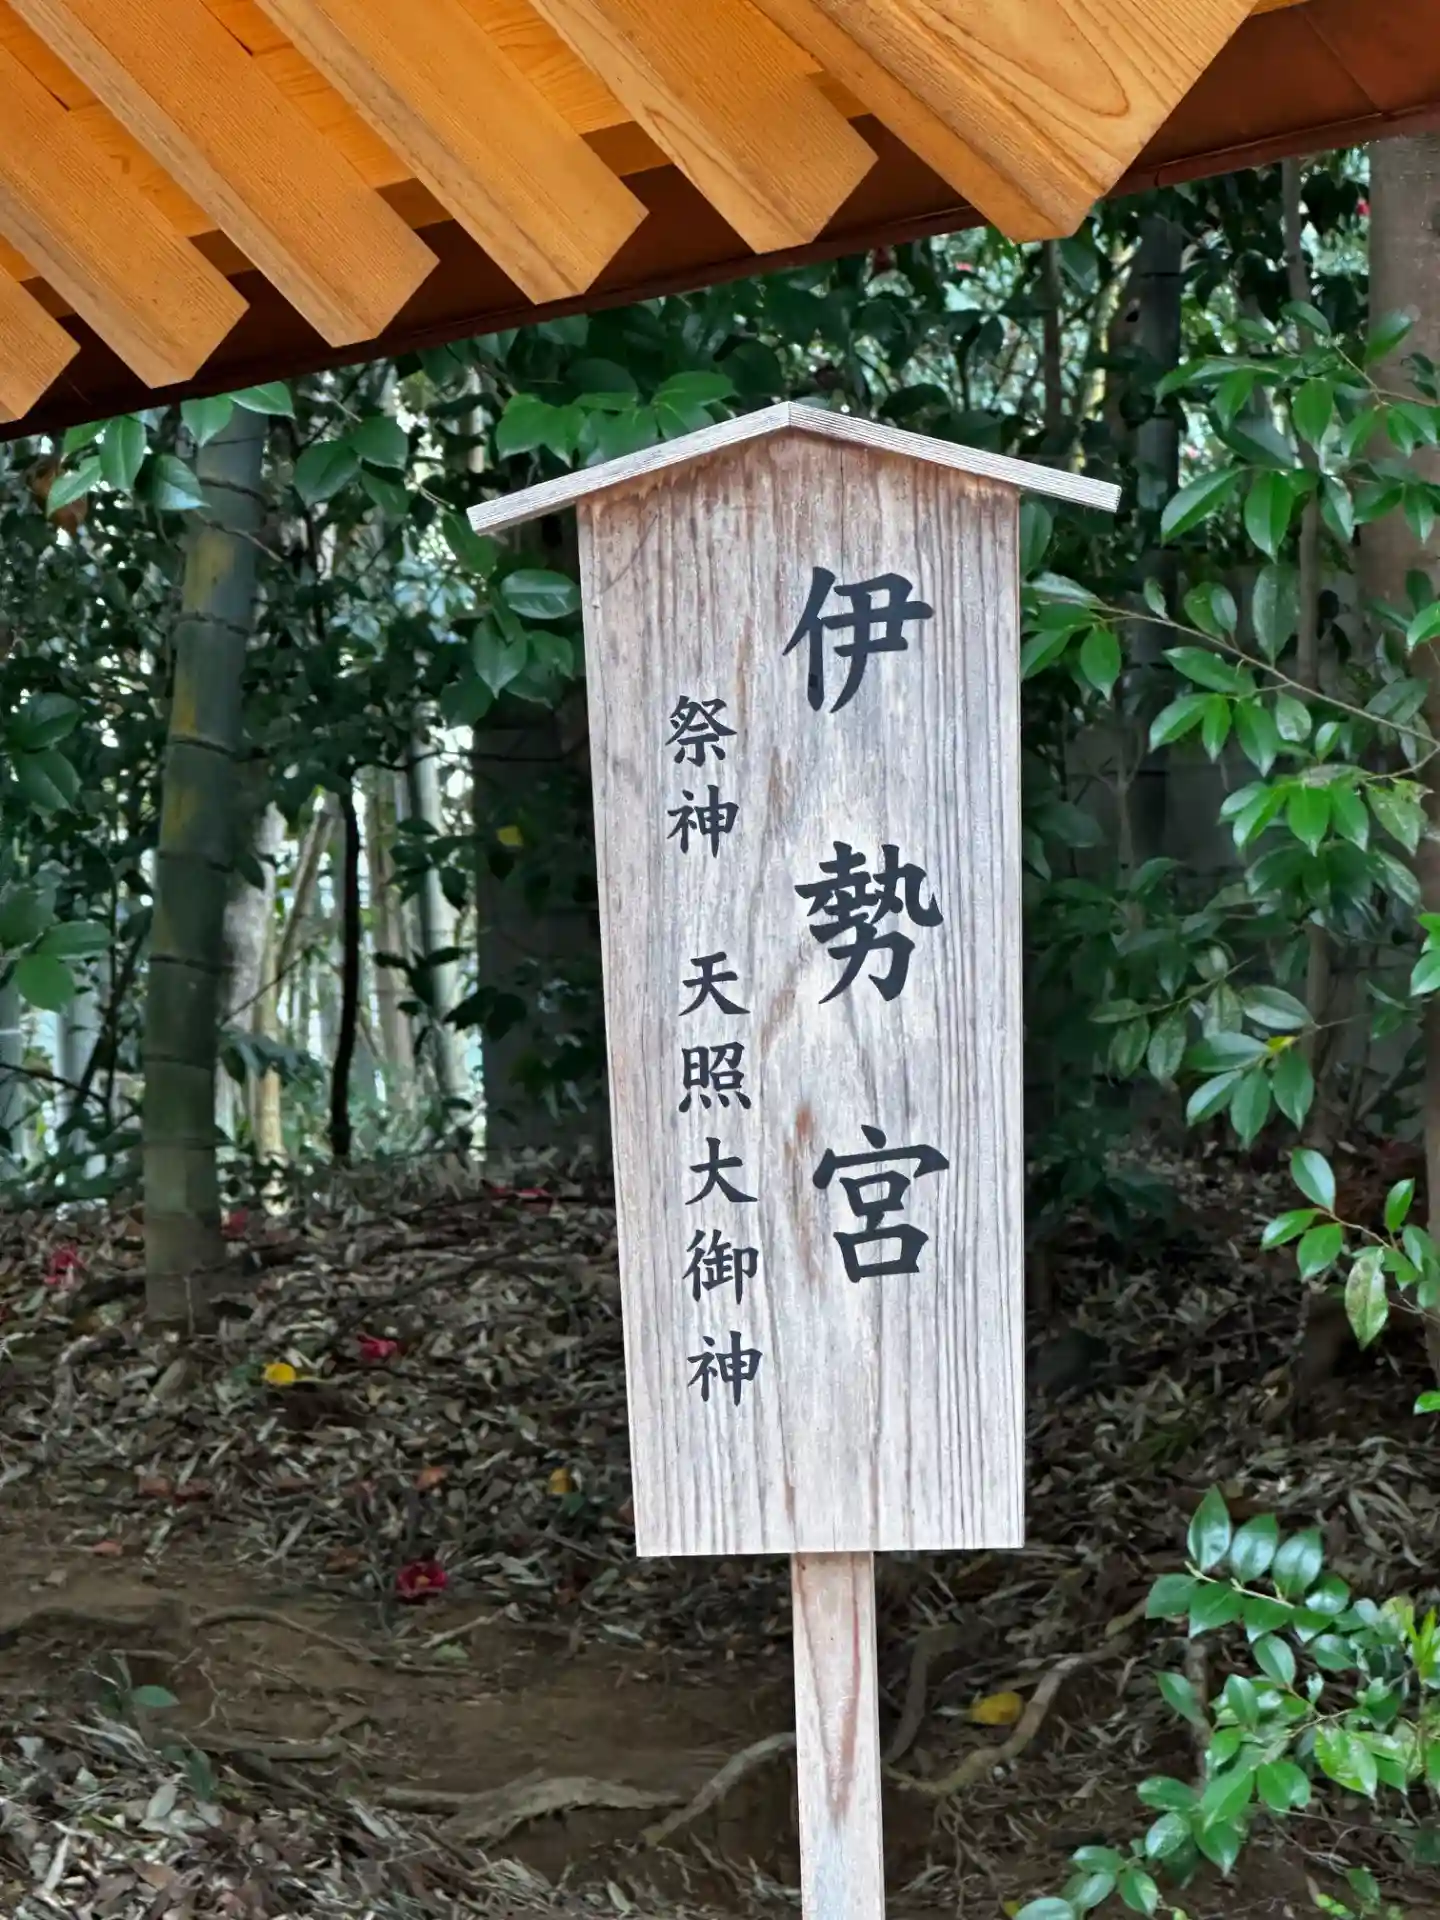 伊勢宮
祭神　天照大御神